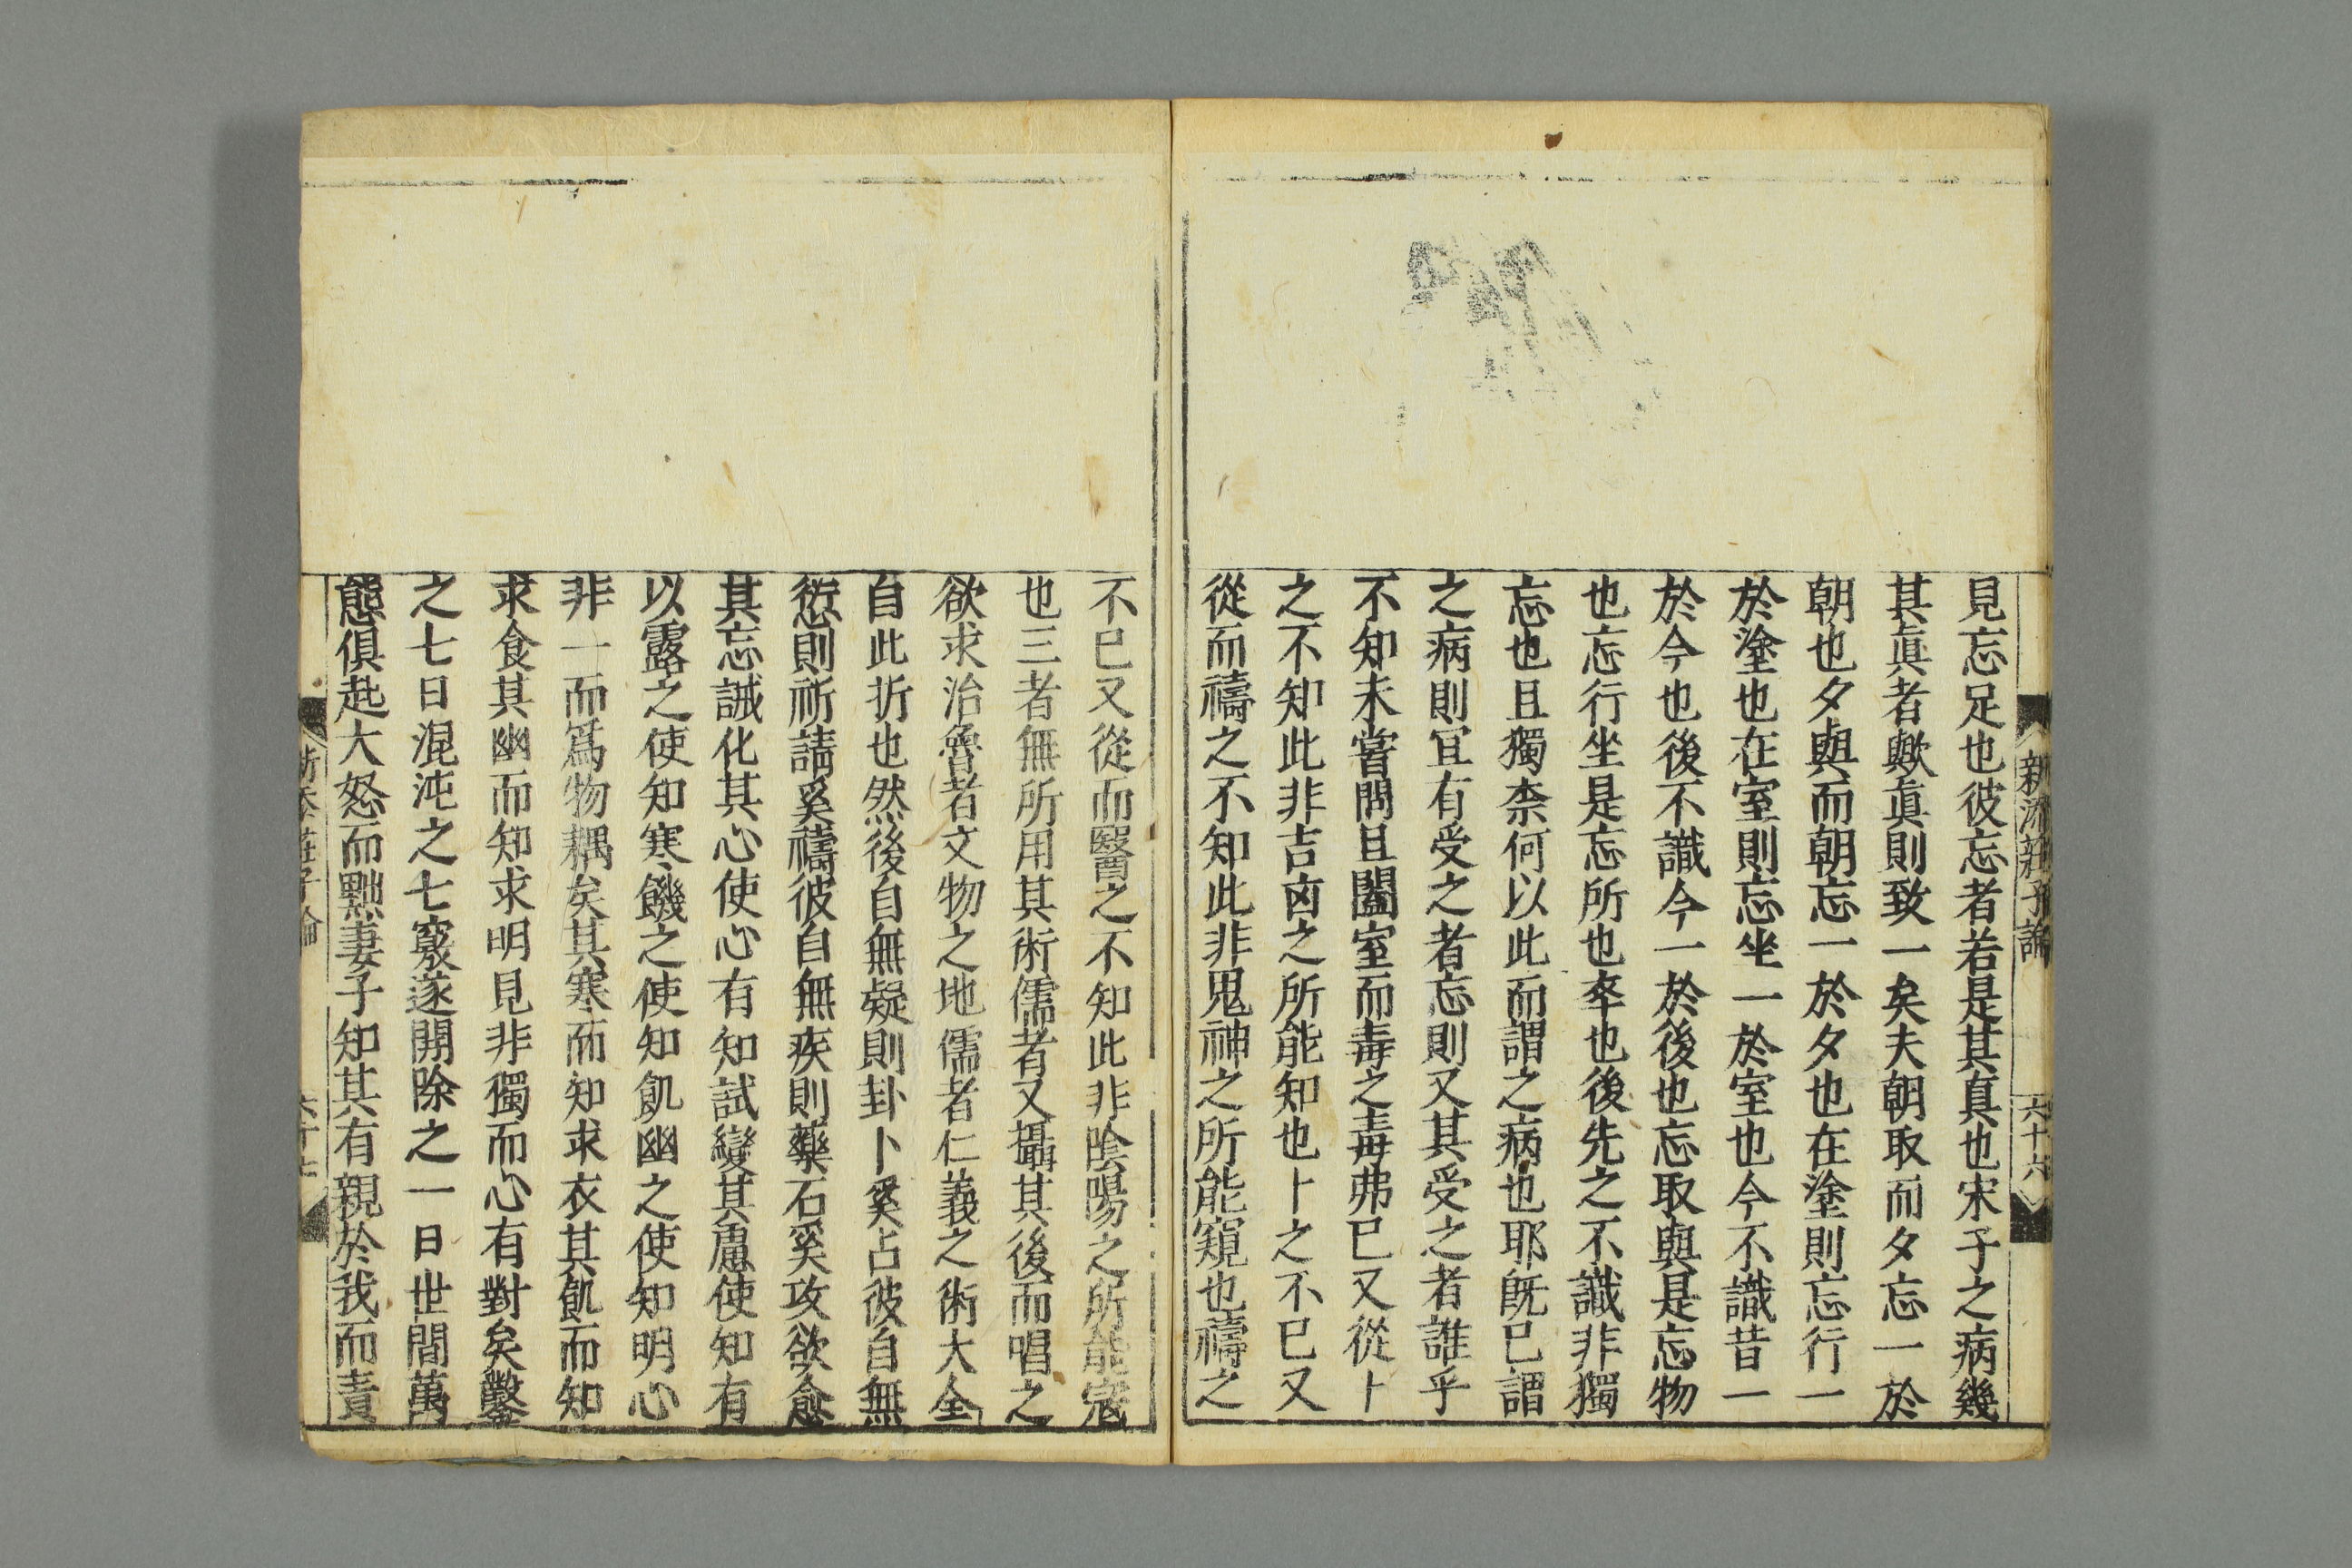 新添莊子論
六十六
見忘足也彼忘者若是其真也宋子之病幾
其眞者歟眞則致一矣夫朝取而夕忘一於
朝也夕與而朝忘一於夕也在塗則忘行一
於塗也在室則忘坐一於室也今不識昔一
於今也後不識今一於後也忘取與是忘物
也忘行坐是忘所也卒也後先之不識非獨
忘也且獨柰何以此而謂之病也耶旣已謂
之病則冝有受之者忘則又其受之者誰乎
不知未甞問且闔室而毒之毒弗已又從卜
之不知此非吉凶之所能知也卜之不已又
從而禱之不知此非鬼神之所能窺也禱之
不已又從而醫之不知此非陰陽之所能寇
也三者無所用其術儒者又攝其後而唱之
欲求治魯者文物之地儒者仁義之術大全
自此折也然後自無疑則卦卜奚占彼自無
愆則祈請奚禱彼自無疾則藥石奚攻欲愈
其忘誠化其心使心有知試變其慮使知有
以露之使知寒饑之使知飢幽之使知明心
非一而爲物耦矣其寒而知求衣其飢而知
求食其幽而知求明見非獨而心有對矣鑿
之七日混沌之七竅遂開除之一日世間萬
態俱起大怒而黜妻子知其有親於我而責
莊子論
六十七